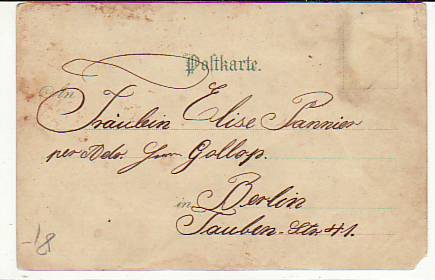 Postkarte.
An
Fräulein Elise Pannier
per Adr. Herrn Gollop.
in Berlin
Tauben-Str. 41.
-18